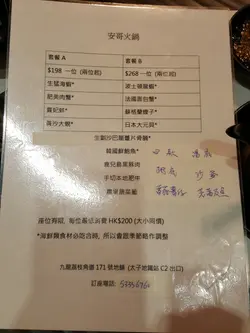 安哥火鍋
套餐 A 套餐 B
$198 一位 (兩位起) $268 一位 (兩位起)
生猛海蝦* 波士頓龍蝦*
肥美肉蟹* 法國麵包蟹*
貴妃蚌* 蘇格蘭蟶子*
高沙大蜆* 日本大元貝*
生劏沙巴龍躉片骨腩*
韓國鮮鮑魚*
鹿兒島黑豚肉
手切本地肥牛
農家蔬菜籃
沙爹
座位有限，每位最低消費 HK$200 (大小同價)
*海鮮類食材必能含時，所以會跟季節略作調整
九龍荔枝角道 171 號地舖 (太子地鐵站 C2 出口)
訂座電話: